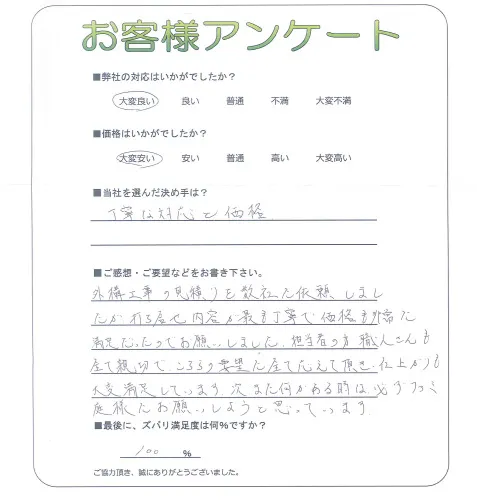 お客様アンケート
■弊社の対応はいかがでしたか？
大変良い 良い 普通 不満 大変不満
■価格はいかがでしたか？
大変安い 安い 普通 高い 大変高い
■当社を選んだ決め手は？
丁寧な対応と価格
■ご感想・ご要望などをお書き下さい。
外構工事の見積りを数社に依頼しまし
たが 内容が最も丁寧で価格も非常に
満足だったのでお願いしました。担当者の方 職人さんも
親切で、こちらの要望に全て応えて頂き、仕上がりも
大変満足しています。次また何かある時は必ず
庭様にお願いしようと思っています。
■最後に、ズバリ満足度は何%ですか？
100 %
ご協力頂き、誠にありがとうございました。